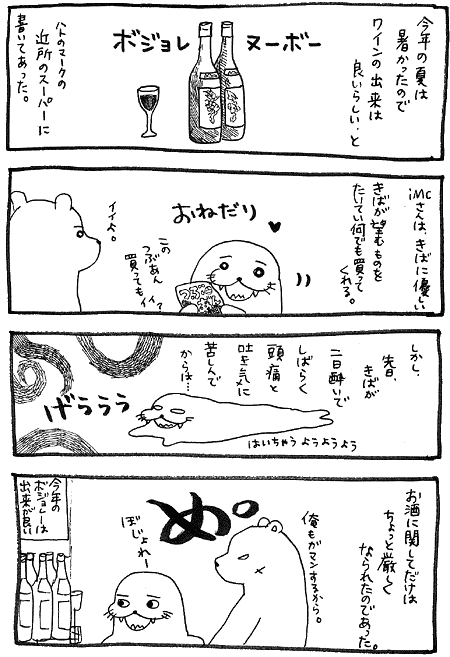 今年の夏は
暑かったので
ワインの出来は
良いらしい、と
ボジョレ ヌーボー
ハトのマークの
近所のスーパーに
書いてあった。
iMcさんは、きばに優しい
きばが望むものを
たいてい何でも買って
くれる。
おねだり
この
つぶあん
買っても
イイ?
イイよ。
しかし、
先日、
きばが
二日酔いで
しばらく
頭痛と
吐き気に
苦しんで
からは…
げううう
はいちゃうようようよう
お酒に関してだけは
ちょっと厳しく
なられたのであった。
め。
俺もガマンするから。
ぼじょれー
今年の
ボジョレーは
出来が良い